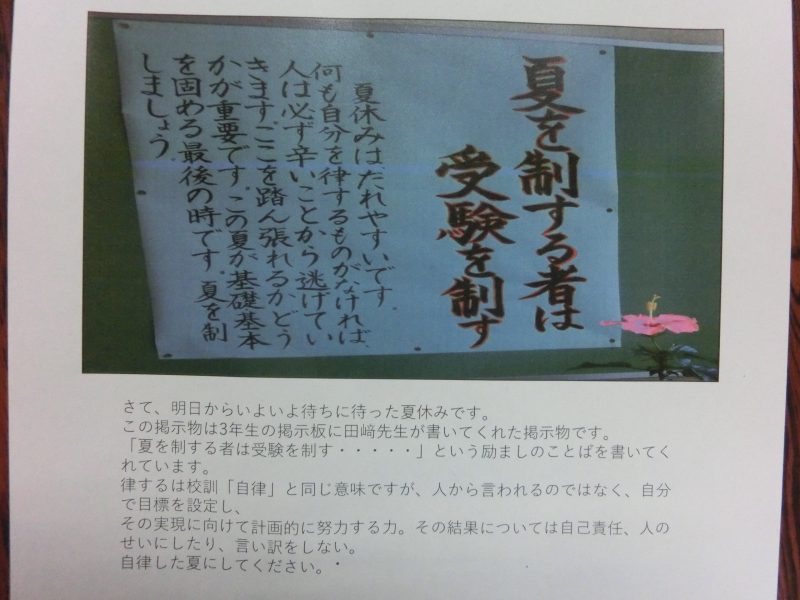 夏を制する者は
受験を制す
夏休みはだれやすいです.
何も自分を律するものがなければ、
人は必ず辛いことから逃げてい
きます.ここを踏ん張れるかどう
かが重要です.この夏が基礎基本
を固める最後の時です.夏を制
しましょう.
さて、明日からいよいよ待ちに待った夏休みです。
この掲示物は3年生の掲示板に田﨑先生が書いてくれた掲示物です。
「夏を制する者は受験を制す・・・・・」という励ましのことばを書いてく
れています。
律するは校訓「自律」と同じ意味ですが、人から言われるのではなく、自分
で目標を設定し、
その実現に向けて計画的に努力する力。その結果については自己責任、人の
せいにしたり、言い訳をしない。
自律した夏にしてください。